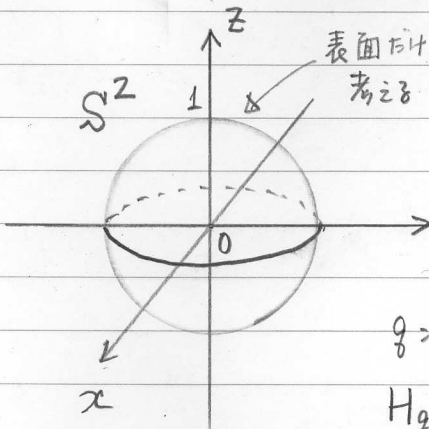 z
表面だけ
考える
S²
1
0
x
q
H